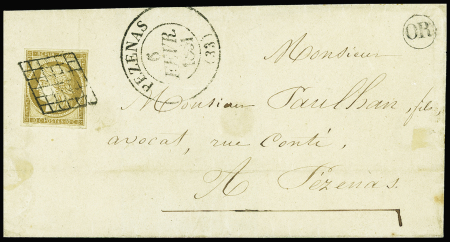 PÉZENAS
6
FEVR.
1851
(33)
OR
Monsieur
Monsieur Paulhan, fils,
avocat, rue Conti,
A Pézenas.